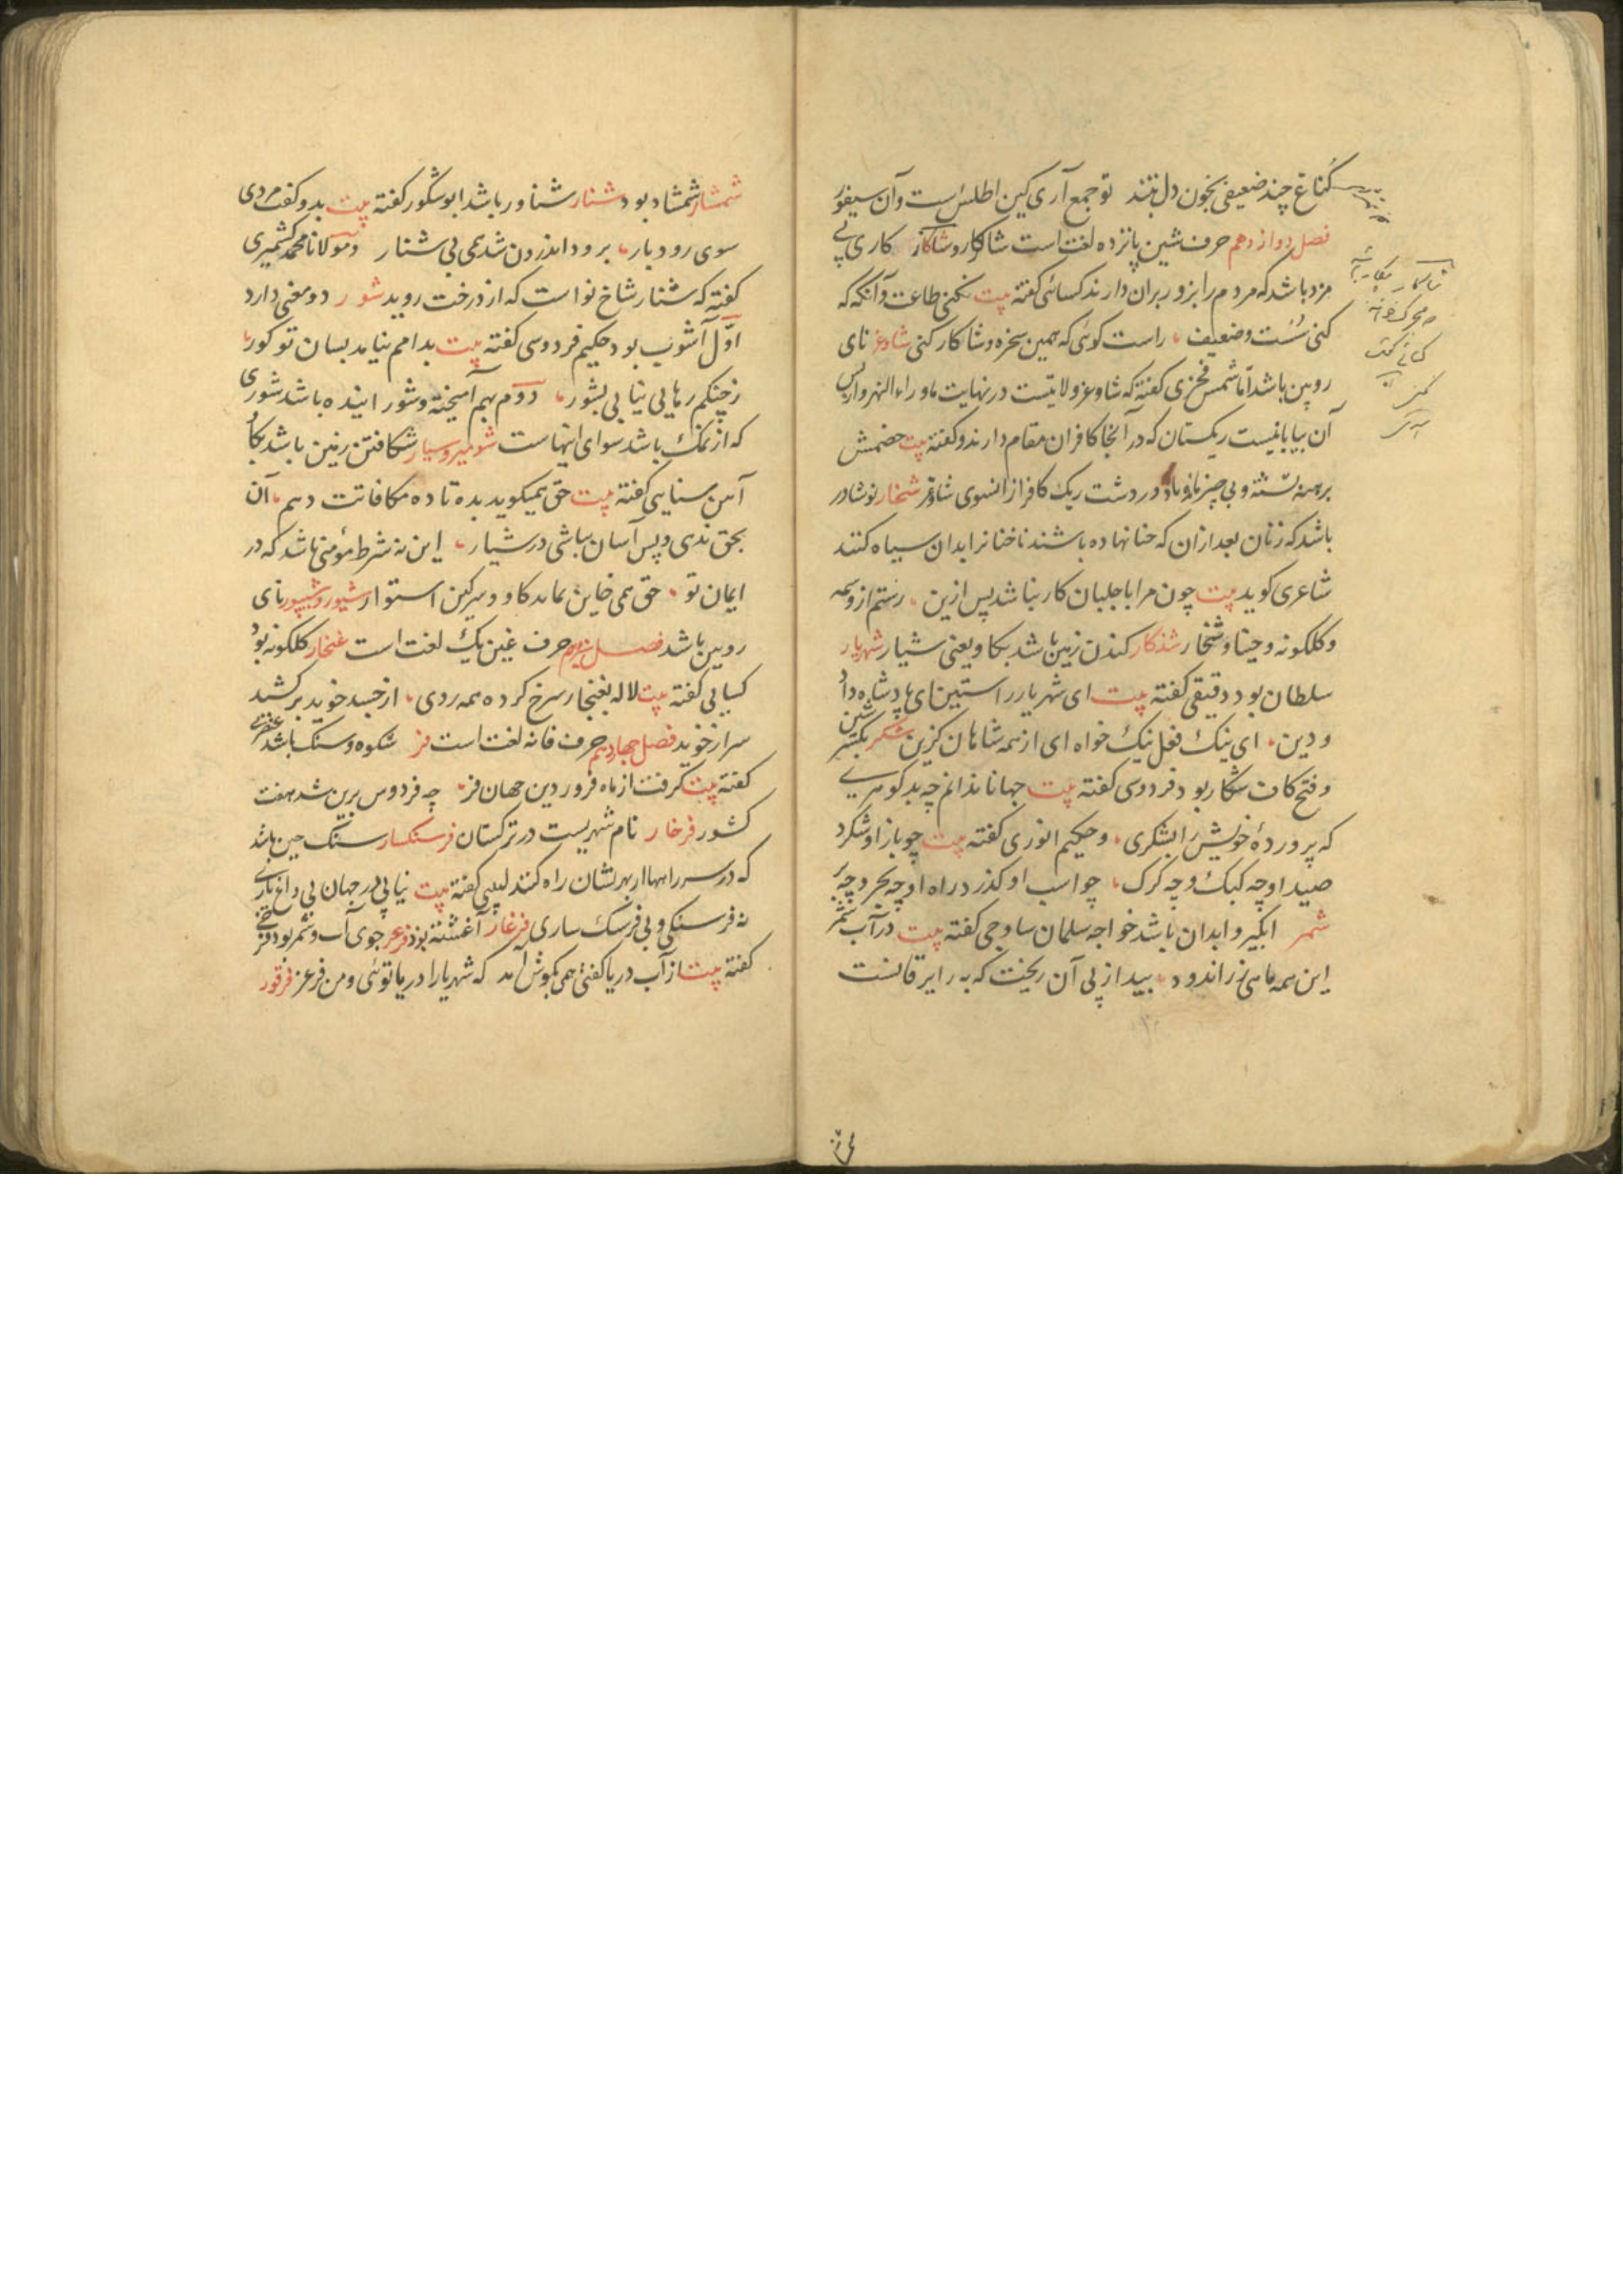 کناغ چند ضعیفی بخون دل بتند تو جمع آری کین اطلس است وآن سیفور
فصل دوازدهم حرف شین پانزده لغت است شاکار و شاکار کاری بی
مزد باشد که مردم را بزور بران دارند کسائی کفته بیت نکنی طاعت وآنکه که
کنی سُست وضعیف راست کوئی که بهمین سخره وشاکار کنی شاوغر نای
رویین باشد امّا شمس فخری کفته که شاوغر ولایتیست در نهایت ماوراء النهر واز پس
آن بیابانیست ریکستان که در آنجا کافران مقام دارند وکفته بیت خصمش
برهنه تشنه وبی چیز باد در دشت ریک کافر ازانسوی شاوغر شخار نوشادر
باشد که زنان بعد ازان که حنا نهاده باشند ناخنانرا بدان سیاه کنند
شاعری کوید بیت چون مرا با جلبان کار نباشد پس ازین رستم از وسمه
وکلکونه وحنا وشخار شدکار کندن زمین باشد بکاو یعنی شیار شهریار
سلطان بود دقیقی کفته بیت ای شهریار راستین ای پادشاه داد
ودین ای نیک فعل نیک خواه ای از همه شاهان کزین شکر بکسر شین
وفتح کاف شکار بود فردوسی کفته بیت جهانا ندانم چه بد کوهری
که پروردۀ خویش را بشکری وحکیم انوری کفته بیت چو باز او شکرد
صید او چه کبک وچه کرک چو اسب او کذرد راه او چه بحر وچه بر
شمر آبکیر وآبدان باشد خواجه سلمان ساوجی کفته بیت در آب شمر
این همه ماهی زر اندود بید از پی آن ریخت که به رایرقانست
شمشار شمشاد بود شنار شناور باشد ابوشکور کفته بیت بدو کفت مردی
سوی رودبار برود اندرون شد همی بی شنار ومولانا محمد کشمیری
کفته که شنار شاخ نو است که از درخت روید شور دو معنی دارد
اوّل آشوب بود حکیم فردوسی کفته بیت بدامم نیامد بسان تو کور
ز چنکم رهایی نیابی بشور دوم بهم آمیخته وشور اینده باشد شوری
که از نمک باشد سوای اینهاست شومیز وسیار شکافتن زمین باشد بکاو
آهن سنایی کفته بیت حق همیکوید بده تا ده مکافاتت دهم آن
بحق ندی وپس آسان بپاشی در شیار این نه شرط مؤمنی باشد که در
ایمان تو حق همی خاین نماید کاو وسرکین استوار شیپور وشیپور نای
رویین باشد فصل سیزدهم حرف غین یک لغت است غنجار کلکونه بود
کسایی کفته بیت لاله بغنجار سرخ کرده همه روی از حسد خوید برکشید
سر از خوید فصل چهاردهم حرف فا نه لغت است فر شکوه وسنک باشد عنصری
کفته بیت کرفت از ماه فروردین جهان فر چه فردوس برین شد هفت
کشور فرخار نام شهریست در ترکستان فرسنکسار سنک چین باشد
که در سر راهها از بهر نشان راه کنند لبیبی کفته بیت نیابی در جهان بی داغ پایم
نه فرسنکی وبی فرسنک ساری فرغار آغشته بود فرغر جوی آب وشمر بود فرخی
کفته بیت از آب دریا کفتی همی بکوش آمد که شهریارا دریا توئی ومن فرغر فرقور